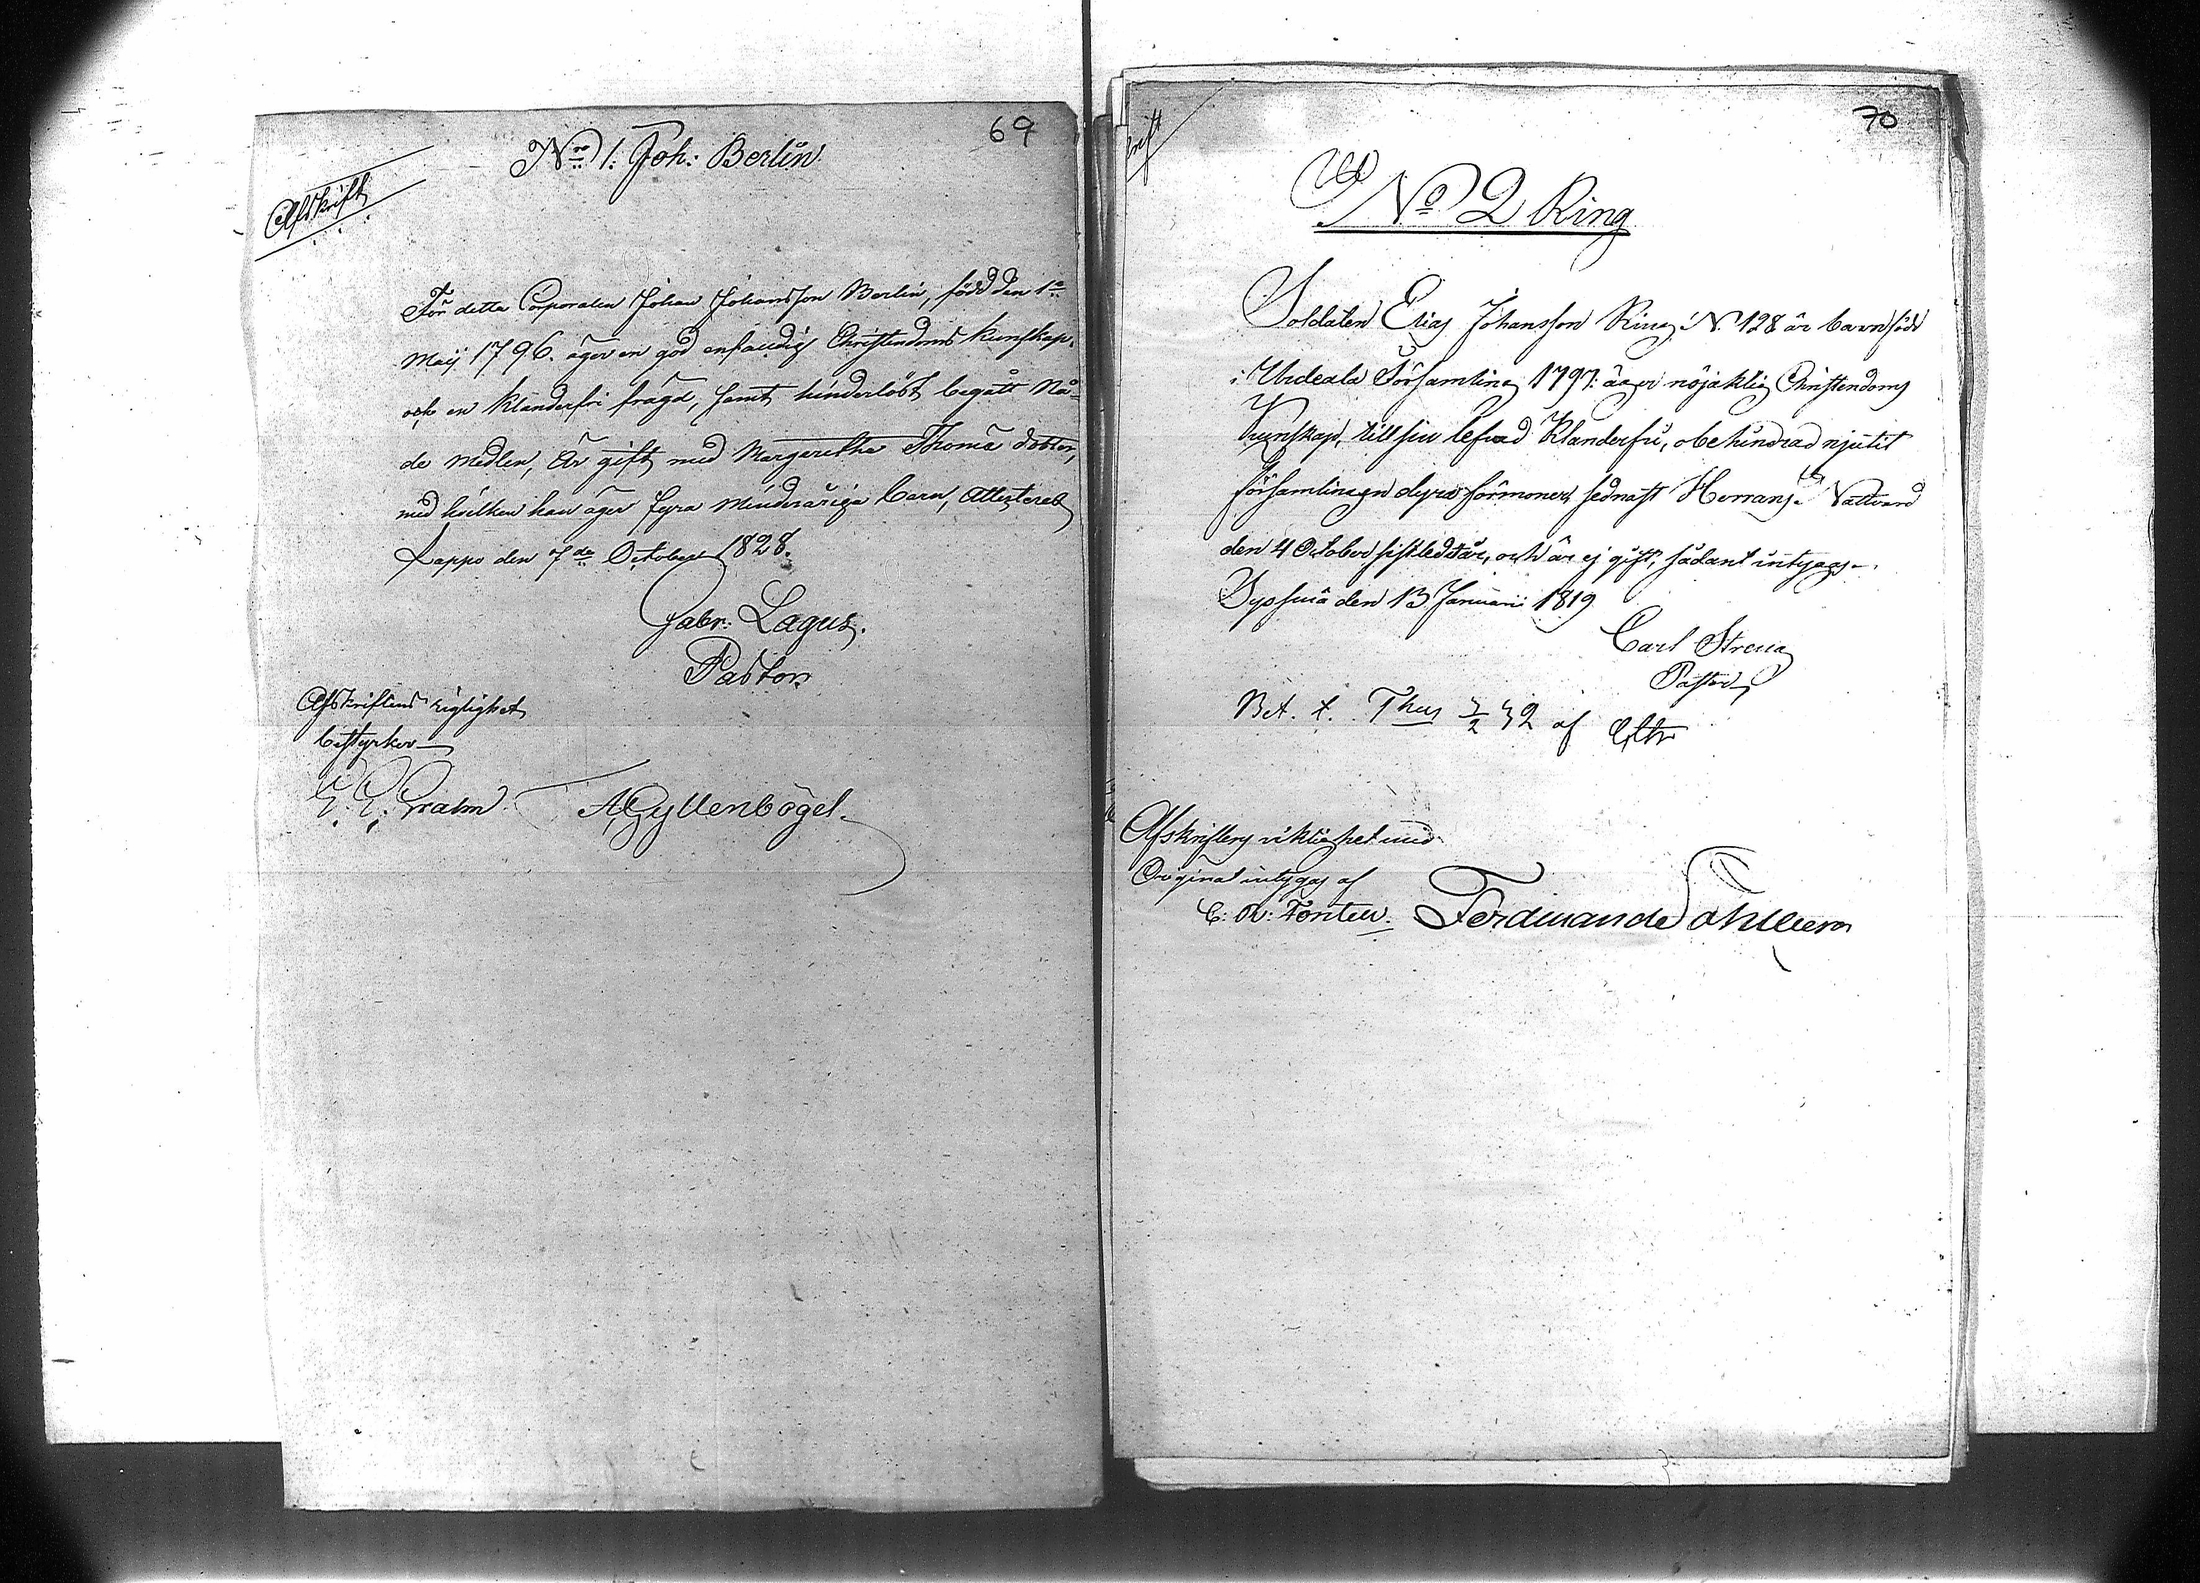 69
No 1. Joh: Berlin
Afskrift
För detta Corporalen Johan Johansson Berlin, född den 1a
Maij 1796. äger en god enfaldig Christendoms kunskap,
och en klanderfri frägd, samt hinderlöst begått Nå-
de Medlen, Är gift med Margaretha Thomä dotter,
med hvilken han äger fyra Minderåriga barn, Attesterar
Lappo den 7de October 1828.
Gabr. Lagus.
Pastor
Afskriftens rigtighet
bestyrker
Gyllenbögel.
70
No 2 Ring
Soldaten Elias Johansson Ring No 128 är barnfödd
i Församling 1797. äger nöjaktig Christendoms
Kunskap, till sin lefnad Klanderfri, obehindrad njutit
församlingen dyra förmoner, sednast Herrans H. Nattvard
den 4 October sistledit år, och är ej gift, sådant intygas
den 13 Januarii 1819
Carl
Pastor
af
Afskriftens riktighet med
Original intygas af
Ferdinand